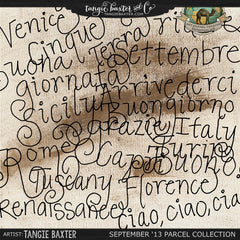 tangie baxter & Co
TANGIEBAXTER.COM
Venice
Cinque Terra
Buona Settembre
giornata
Sicily Arrivederci
Buongiorno
Rome Grazie Italy
Turing
Capp Buono!
Tuscany Florence
Renaissance
Ciao, ciao, cia
ARTIST: TANGIE BAXTER SEPTEMBER '13 PARCEL COLLECTION